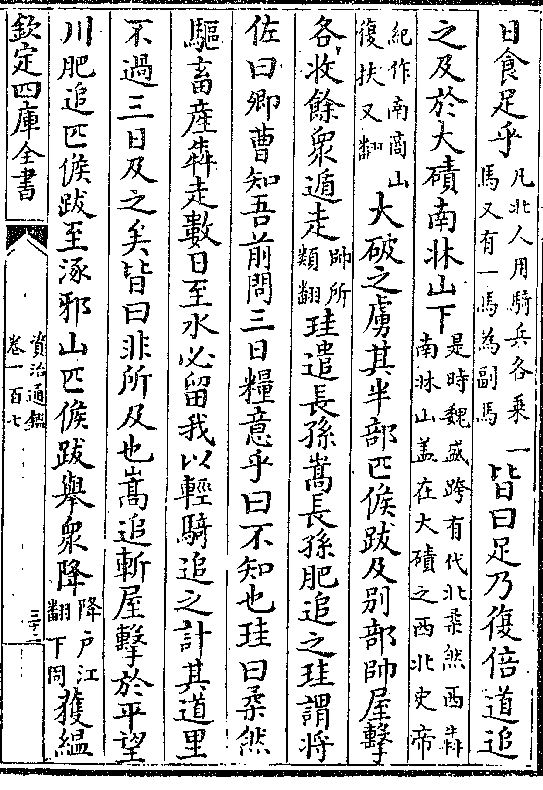 日食足乎凡北人用騎兵各乗一馬又有一馬為副馬皆曰足乃復倍道追
之及於大磧南牀山下是時魏盛跨有代北柔然西奔南牀山盖在大磧之西北史帝
紀作南商山復扶又翻大破之虜其半部匹候跋及别部帥屋擊
各收餘衆遁走帥所類翻珪遣長孫嵩長孫肥追之珪謂將
佐曰卿曹知吾前問三日糧意乎曰不知也珪曰柔然
驅畜産犇走數日至水必留我以輕騎追之計其道里
不過三日及之矣皆曰非所及也嵩追斬屋擊於平望
川肥追匹候跋至涿邪山匹候跋舉衆降降户江翻下同獲緼
欽定四庫全書
資治通鑑
卷一百七